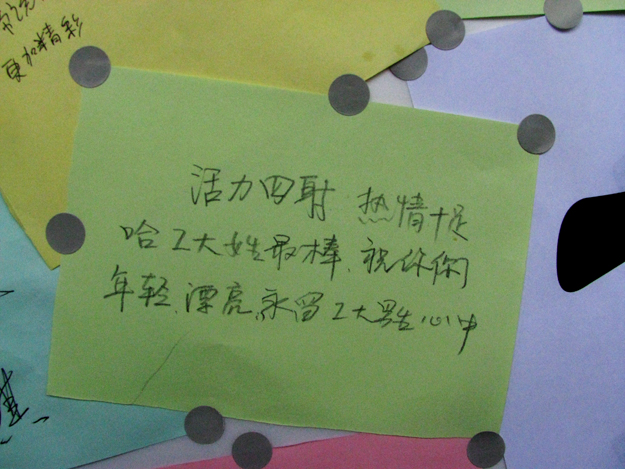 更加精彩
活力四射 热情十足
哈工大女生最棒,祝你们
年轻、漂亮,永留工大男生心中